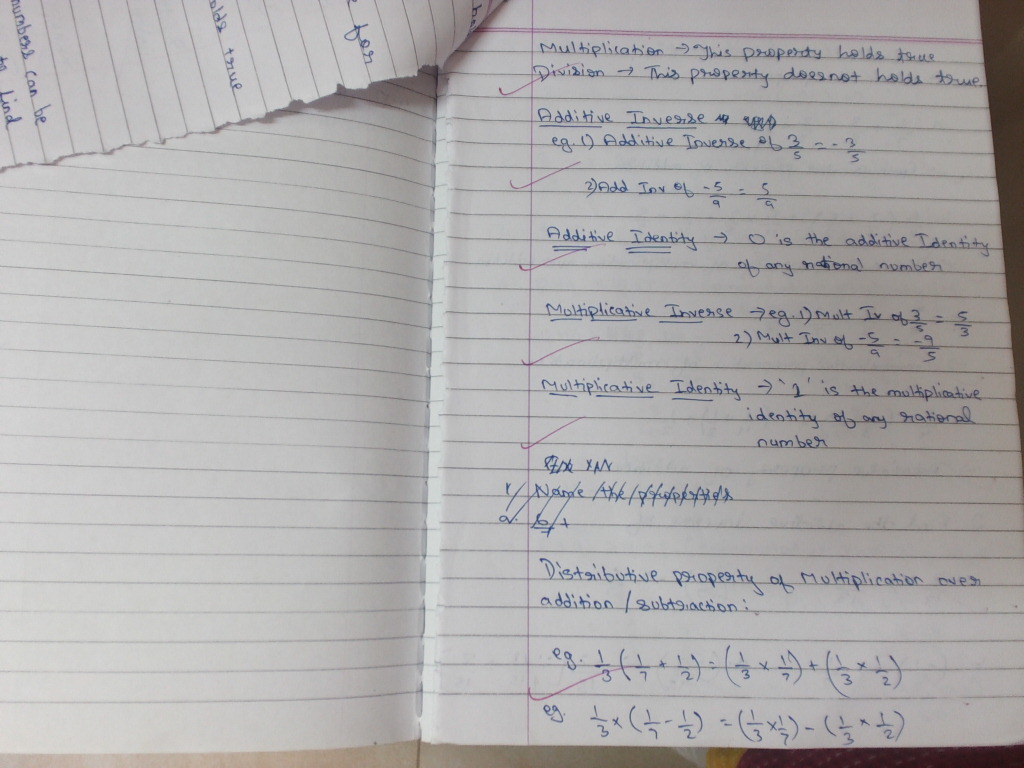 for
holds true
numbers can be
to find
Multiplication → This property holds true
Division → This property doesnot holds true.
Additive Inverse
eg. 1) Additive Inverse of 3/5 = -3/5
2) Add Inv of -5/9 = 5/9
Additive Identity → 0 is the additive Identity
of any rational number
Multiplicative Inverse → eg. 1) Mult Iv of 3/5 = 5/3
2) Mult Inv of -5/9 = -9/5
Multiplicative Identity → '1' is the multiplicative
identity of any rational
number
Name the
Distributive property of Multiplication over
addition / subtraction:
eg. 1/3 (1/7 + 1/2) = (1/3 × 1/7) + (1/3 × 1/2)
eg. 1/3 × (1/7 - 1/2) = (1/3 × 1/7) - (1/3 × 1/2)